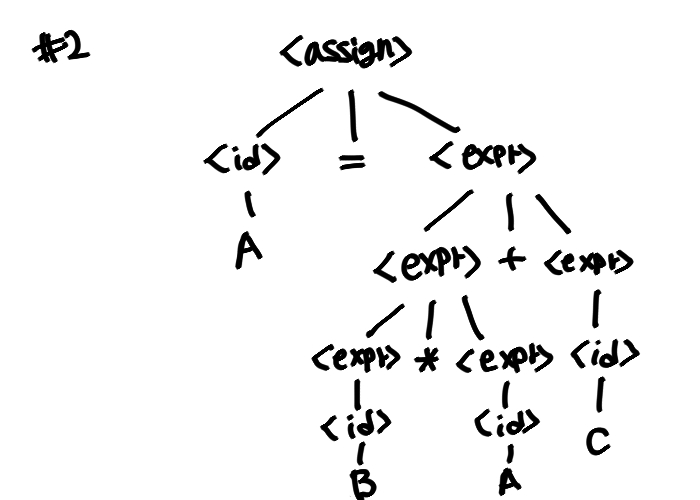 #2
<assign>
<id> = <expr>
A
<expr> + <expr>
<expr> * <expr> <id>
<id> <id> C
B A